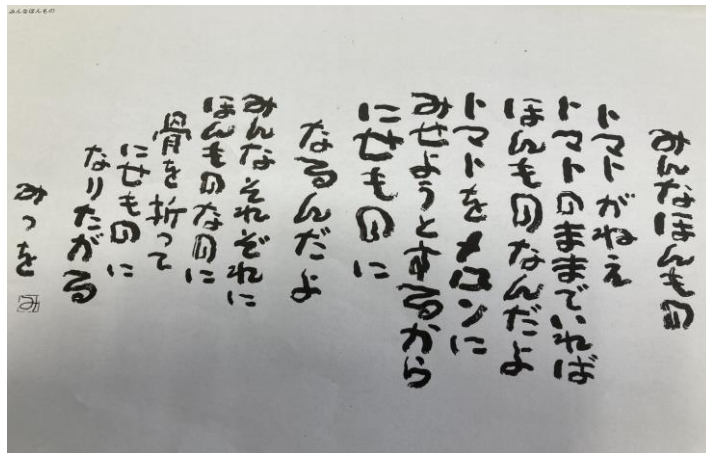 みんなほんもの
みんなほんもの
トマトがねえ
トマトのままでいれば
ほんものなんだよ
トマトをメロンに
みせようとするから
にせものに
なるんだよ
みんなそれぞれに
ほんものなのに
骨を折って
にせものに
なりたがる
みつを
み